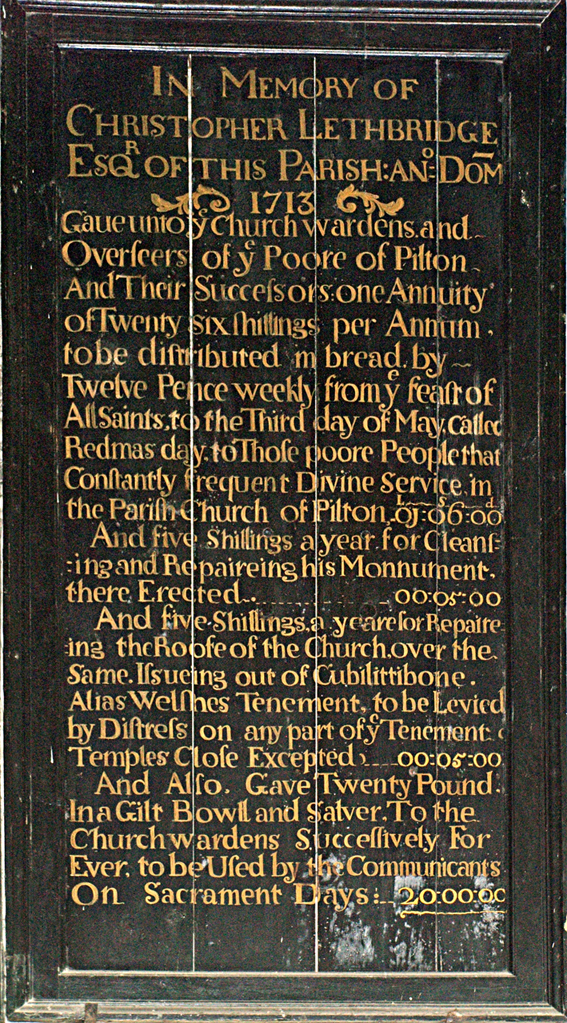 In Memory of
Christopher Lethbridge
Esqr of this Parish: Ano: Dom
1713
Gaue unto ye Church wardens and
Overſeers of ye Poore of Pilton
And Their Succeſsors: one Annuity
of Twenty six ſhillings per Annum,
to be diſtributed in bread, by
Twelve Pence weekly from ye feaſt of
All Saints, to the Third day of May, called
Redmas day, to Thoſe poore People that
Conſtantly frequent Divine Service in
the Pariſh Church of Pilton, L S d 01:06:00
And five Shillings a year for Cleanſ-
:ing and Repaireing his Monnument,
there Erected. 00:05:00
And five Shillings, a yeare for Repaire-
:ing the Roofe of the Church, over the
Same. Iſsueing out of Cubilittibone,
Alias Welſhes Tenement, to be Levied
by Diſtreſs on any part of ye Tenement
Temples Cloſe Excepted 00:05:00
And Alſo, Gave Twenty Pound,
In a Gilt Bowll and Salver, To the
Churchwardens Succeſſively For
Ever, to be Uſed by the Communicants
On Sacrament Days: 20:00:00